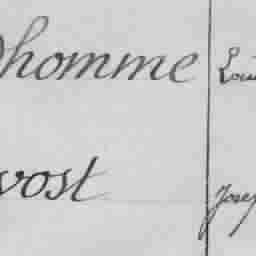 homme Loui
vost Josep